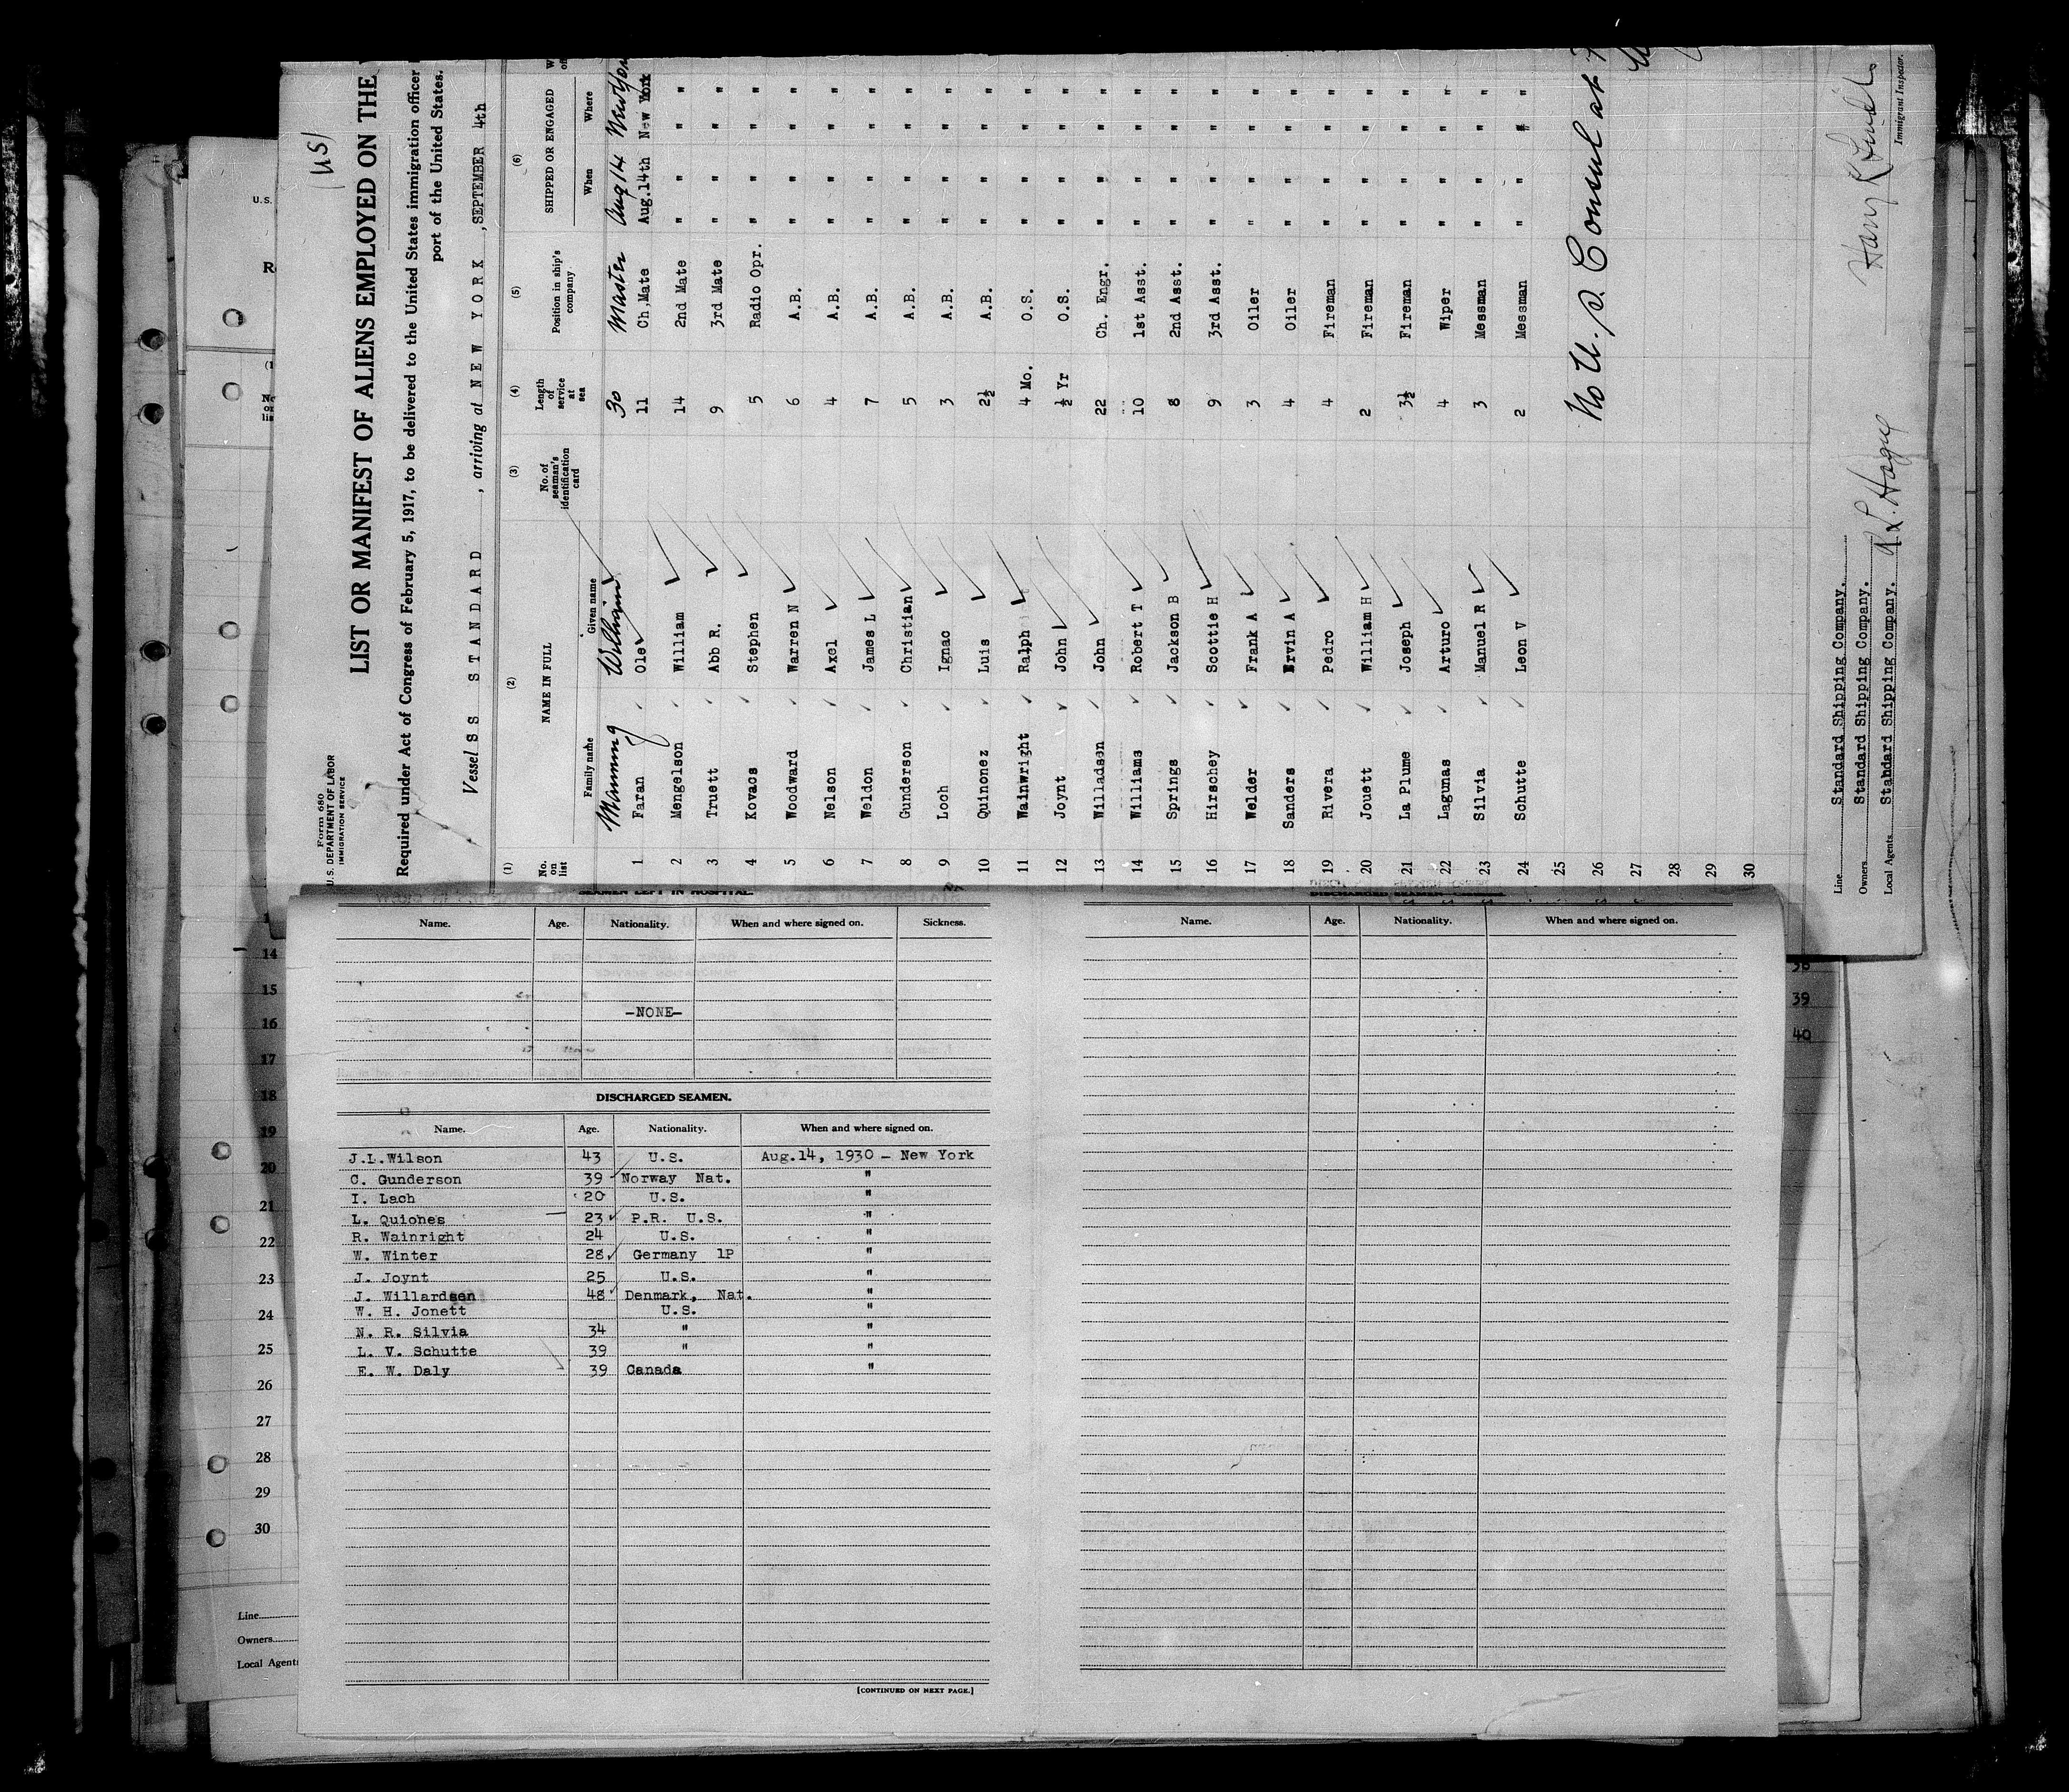 (US)
Form 680
U.S. DEPARTMENT OF LABOR
IMMIGRATION SERVICE
LIST OR MANIFEST OF ALIENS EMPLOYED ON THE
Required under Act of Congress of February 5, 1917, to be delivered to the United States immigration officer
port of the United States.
Vessel S S STANDARD , arriving at NEW YORK , SEPTEMBER 4th
(1) (2) (3) (4) (5) (6)
No. on list NAME IN FULL No. of seaman's identification card Length of service at sea Position in ship's company SHIPPED OR ENGAGED
Family name Given name When Where
Manning William 30 Master Aug 14
1 Faran Ole 11 Ch.Mate Aug.14th New York
2 Mengelson William 14 2nd Mate " " " "
3 Truett Abb R. 9 3rd Mate " " " "
4 Kovacs Stephen 5 Radio Opr. " " " "
5 Woodward Warren N 6 A.B. " " " "
6 Nelson Axel 4 A.B. " " " "
7 Weldon James L 7 A.B. " " " "
8 Gunderson Christian 5 A.B. " " " "
9 Loch Ignac 3 A.B. " " " "
10 Quinonez Luis 2½ A.B. " " " "
11 Wainwright Ralph 4 Mo. O.S. " " " "
12 Joynt John ½ Yr O.S. " " " "
13 Willadsen John 22 Ch. Engr. " " " "
14 Williams Robert T 10 1st Asst. " " " "
15 Springs Jackson B 8 2nd Asst. " " " "
16 Hirschey Scottie H 9 3rd Asst. " " " "
17 Welder Frank A 3 Oiler " " " "
18 Sanders Ervin A 4 Oiler " " " "
19 Rivera Pedro 4 Fireman " " " "
20 Jouett William H 2 Fireman " " " "
21 La Plume Joseph 3½ Fireman " " " "
22 Lagunas Arturo 4 Wiper " " " "
23 Silvia Manuel R 3 Messman " " " "
24 Schutte Leon V 2 Messman " " " "
25
26 No U.S. Consul at
27
28
29
30
Line Standard Shipping Company.
Owners Standard Shipping Company.
Local Agents Standard Shipping Company. R.L. Hague
Immigrant Inspector.
SEAMEN LEFT IN HOSPITAL.
Name. Age. Nationality. When and where signed on. Sickness.
-NONE-
DISCHARGED SEAMEN.
Name. Age. Nationality. When and where signed on.
J.L.Wilson 43 U.S. Aug.14, 1930 - New York
C. Gunderson 39 Norway Nat. "
I. Lach 20 U.S. "
L. Quiohes 23 P.R. U.S. "
R. Wainright 24 U.S. "
W. Winter 28 Germany 1P "
J. Joynt 25 U.S. "
J. Willardsen 48 Denmark, Nat. "
W. H. Jonett U.S. "
N. R. Silvia 34 " "
L. V. Schutte 39 " "
E. W. Daly 39 Canada "
[CONTINUED ON NEXT PAGE.]
DISCHARGED SEAMEN
Name. Age. Nationality. When and where signed on.
U.S.
14
15
16
17
18
19
20
21
22
23
24
25
26
27
28
29
30
Line
Owners
Local Agents
39
40